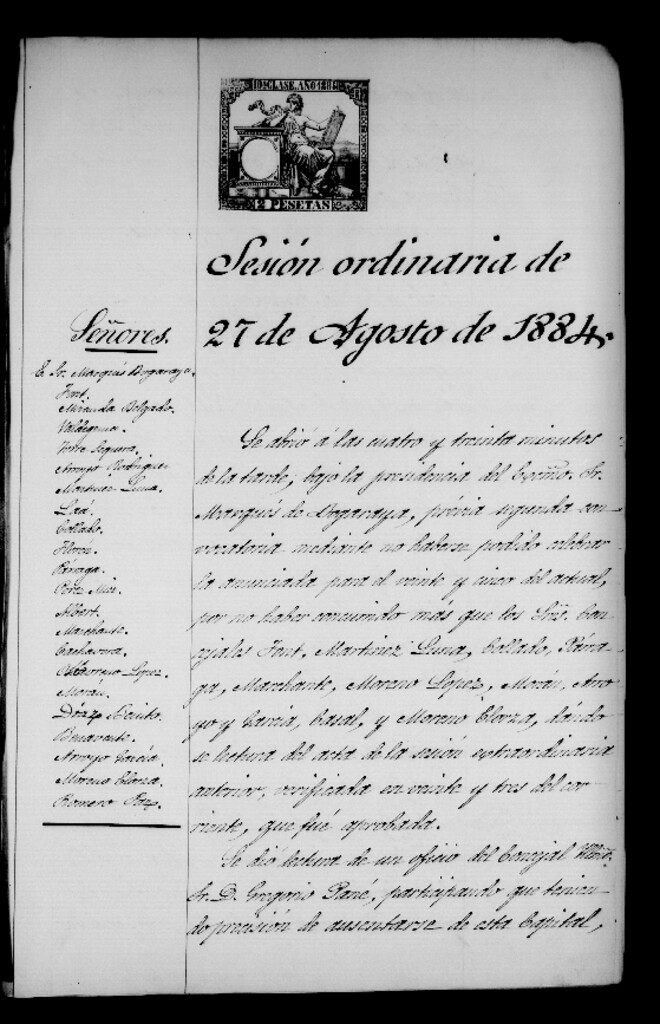 10ª CLASE. AÑO 1884
2 PESETAS
Sesión ordinaria de
27 de Agosto de 1884.
Señores.
E. Sr. Marqués Bogaraya.
Font.
Miranda Delgado.
Valdegema.
Torre Segura.
Arroyo Rodriguez
Martinez Luna.
Collado.
Florez.
Párraga.
Perez Mir.
Albert.
Marchante.
Cachavera.
Moreno Lopez.
Morán.
Díaz Benito.
Benavente.
Arroyo García.
Moreno Elorza.
Romero Paz.
Se abrió á las cuatro y treinta minutos
de la tarde, bajo la presidencia del Excmo. Sr.
Marqués de Bogaraya, prévia segunda con-
vocatoria mediante no haberse podido celebrar
la anunciada para el veinte y cinco del actual,
por no haber concurrido más que los Srs. Con-
cejales Font, Martinez Luna, Collado, Párra-
ga, Marchante, Moreno Lopez, Morán, Arro-
yo y García, Casal, y Moreno Elorza, dándo-
se lectura del acta de la sesión extraordinaria
anterior, verificada en veinte y tres del cor-
riente, que fué aprobada.
Se dió lectura de un oficio del Concejal
Sr. D. Gregorio Pané, participando que tenien-
do precisión de ausentarse de esta Capital,